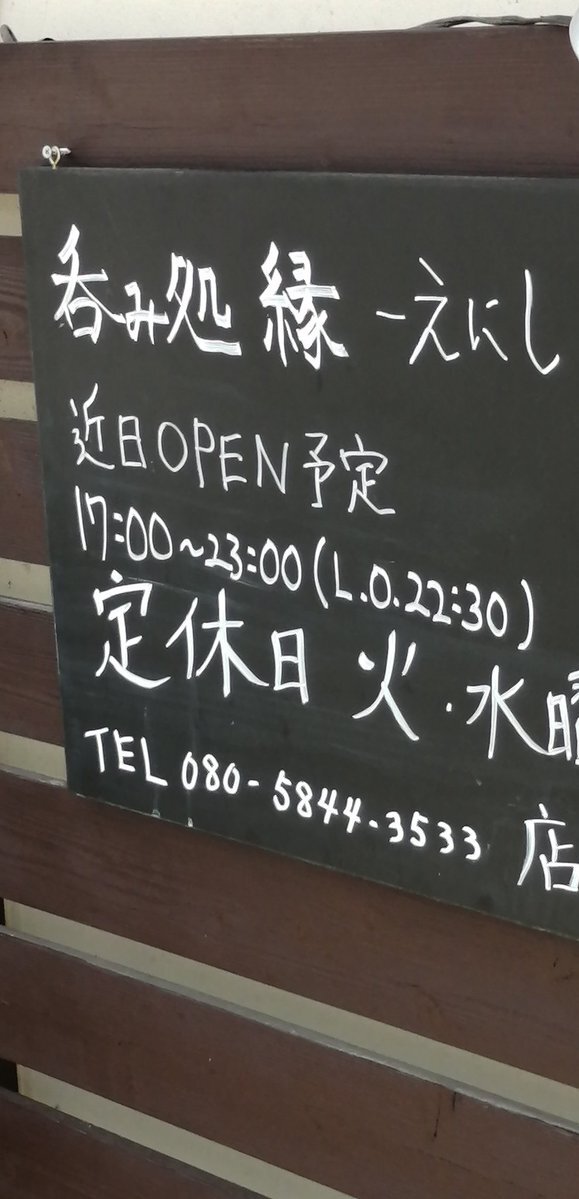 呑み処 縁 -えにし
近日OPEN予定
17:00~23:00(L.O.22:30)
定休日 火・水曜
TEL 080-5844-3533 店